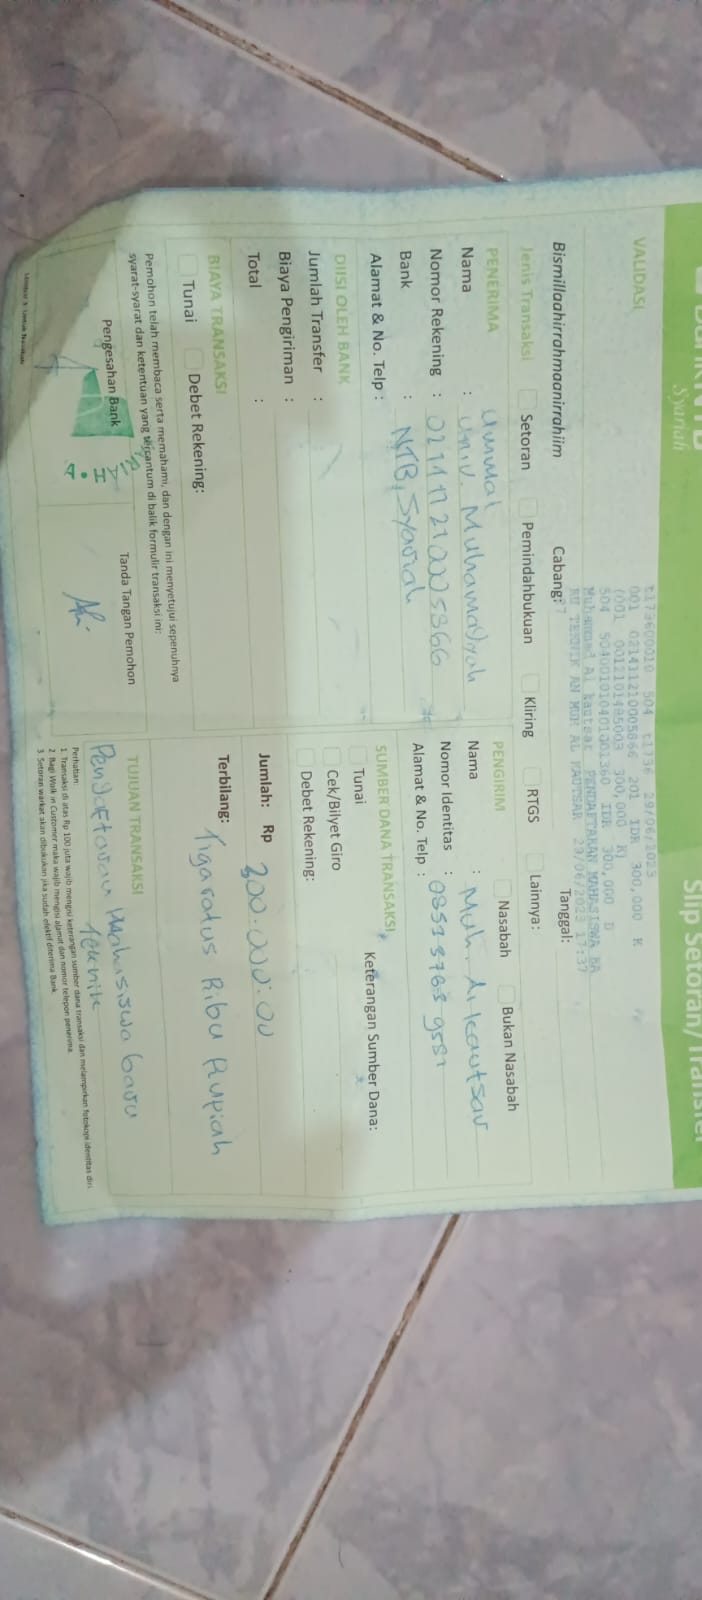 Bank NTB
Syariah
Slip Setoran/Transfer
VALIDASI
t173600010 504 t1736 29/06/2023
001 021431210005866 201 IDR 300,000 K
(001 0012101495003 300,000 K)
504 5040010104001360 IDR 300,000 D
Muhammad Al kautsar PENDAFTARAN MAHASISWA BA
RU TEKNIK AN MUH AL KAUTSAR 29/06/2023 17:37
Bismillaahirrahmaanirrahiim
Cabang:
Tanggal:
Jenis Transaksi
Setoran
Pemindahbukuan
Kliring
RTGS
Lainnya:
PENERIMA
ummat
Nama : Univ. Muhamadiyah
Nomor Rekening :
Bank : NTB Syariah
Alamat & No. Telp :
PENGIRIM
Nasabah
Bukan Nasabah
Nama : Muh. Al kautsar
Nomor Identitas :
Alamat & No. Telp :
DIISI OLEH BANK
Jumlah Transfer :
Biaya Pengiriman :
Total :
SUMBER DANA TRANSAKSI
Tunai
Cek/Bilyet Giro
Debet Rekening:
Keterangan Sumber Dana:
BIAYA TRANSAKSI
Tunai
Debet Rekening:
Jumlah: Rp 300.000.00
Terbilang: Tigaratus Ribu Rupiah
Pemohon telah membaca serta memahami, dan dengan ini menyetujui sepenuhnya
syarat-syarat dan ketentuan yang tercantum di balik formulir transaksi ini:
Pengesahan Bank
Tanda Tangan Pemohon
TUJUAN TRANSAKSI
Pendaftaran Mahasiswa baru
Teknik
Perhatian:
1. Transaksi di atas Rp 100 juta wajib mengisi keterangan sumber dana transaksi dan melampirkan fotokopi identitas diri.
2. Bagi Walk in Customer maka wajib mengisi alamat dan nomor telepon penerima.
3. Setoran warkat akan dibukukan jika sudah efektif diterima Bank.